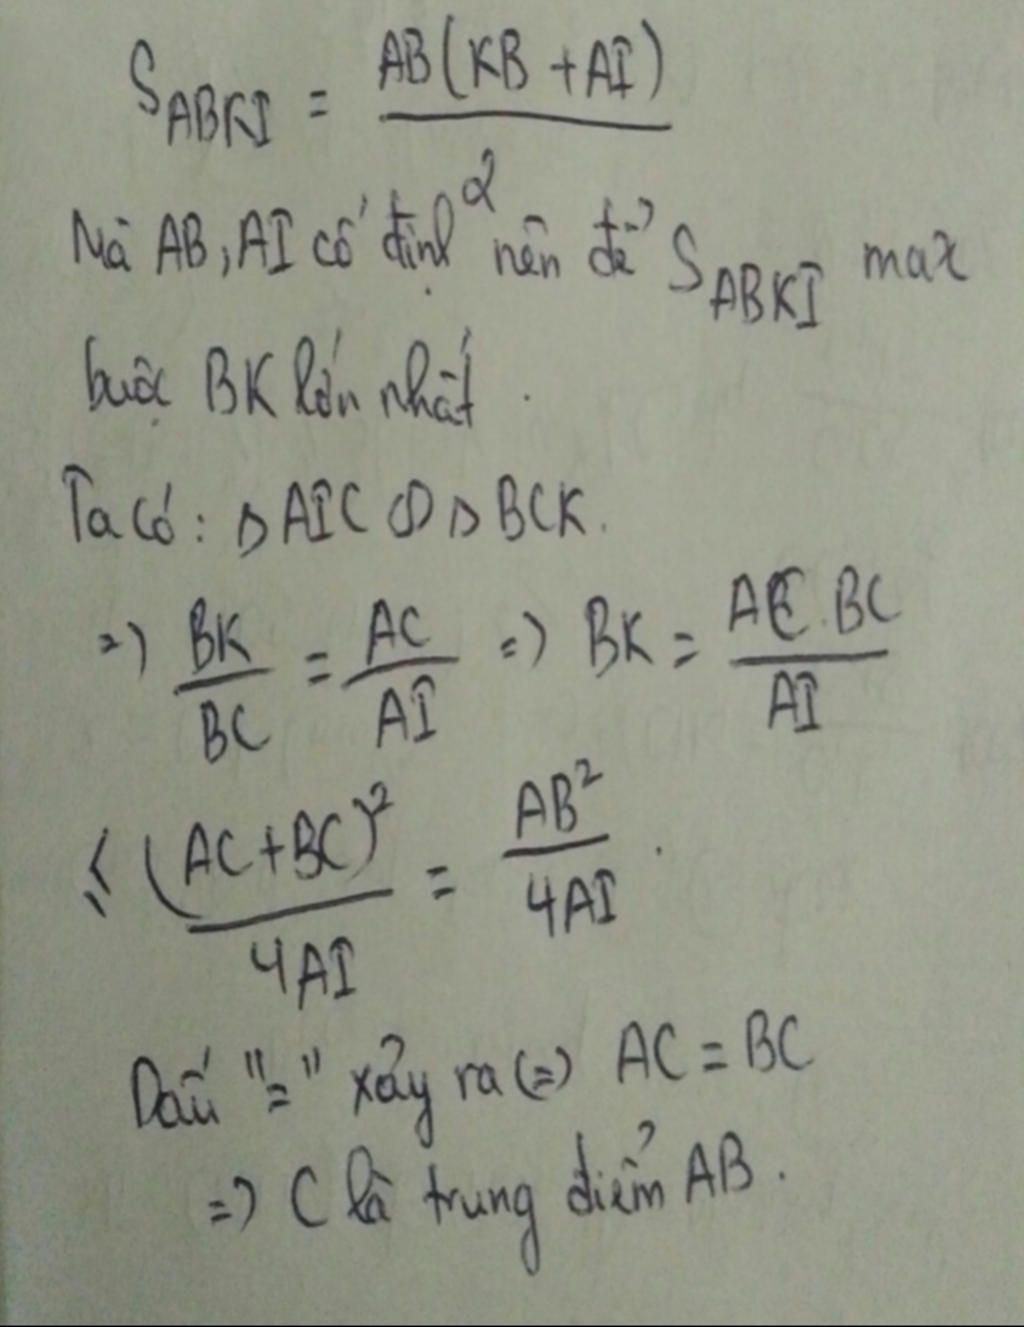 S_ABKI = AB(KB + AI) / 2
Mà AB, AI cố định nên để S_ABKI max
buộc BK lớn nhất.
Ta có: Δ AIC ∽ Δ BCK.
=) BK/BC = AC/AI =) BK = AC.BC/AI
≤ (AC+BC)²/4AI = AB²/4AI.
Dấu "=" xảy ra (=) AC = BC
=) C là trung điểm AB.